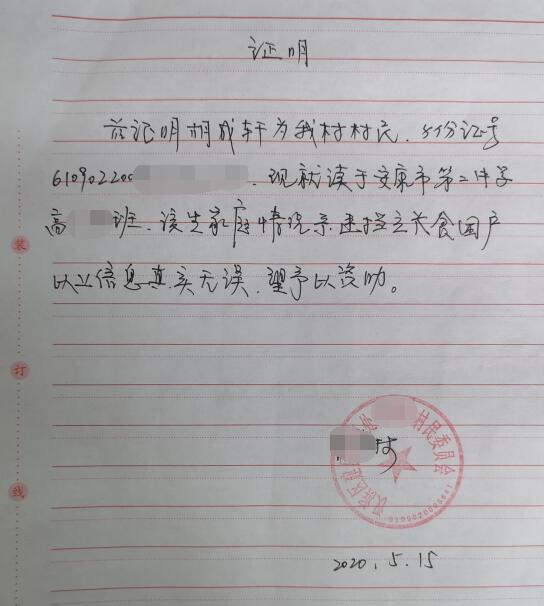 证明
兹证明胡成轩为我村村民，身份证号
61090220，现就读于安康市第二中学
高班，该生家庭情况系建档立卡贫困户
以上信息真实无误，望予以资助。
装
订
线
村民委员会
村
2020.5.15